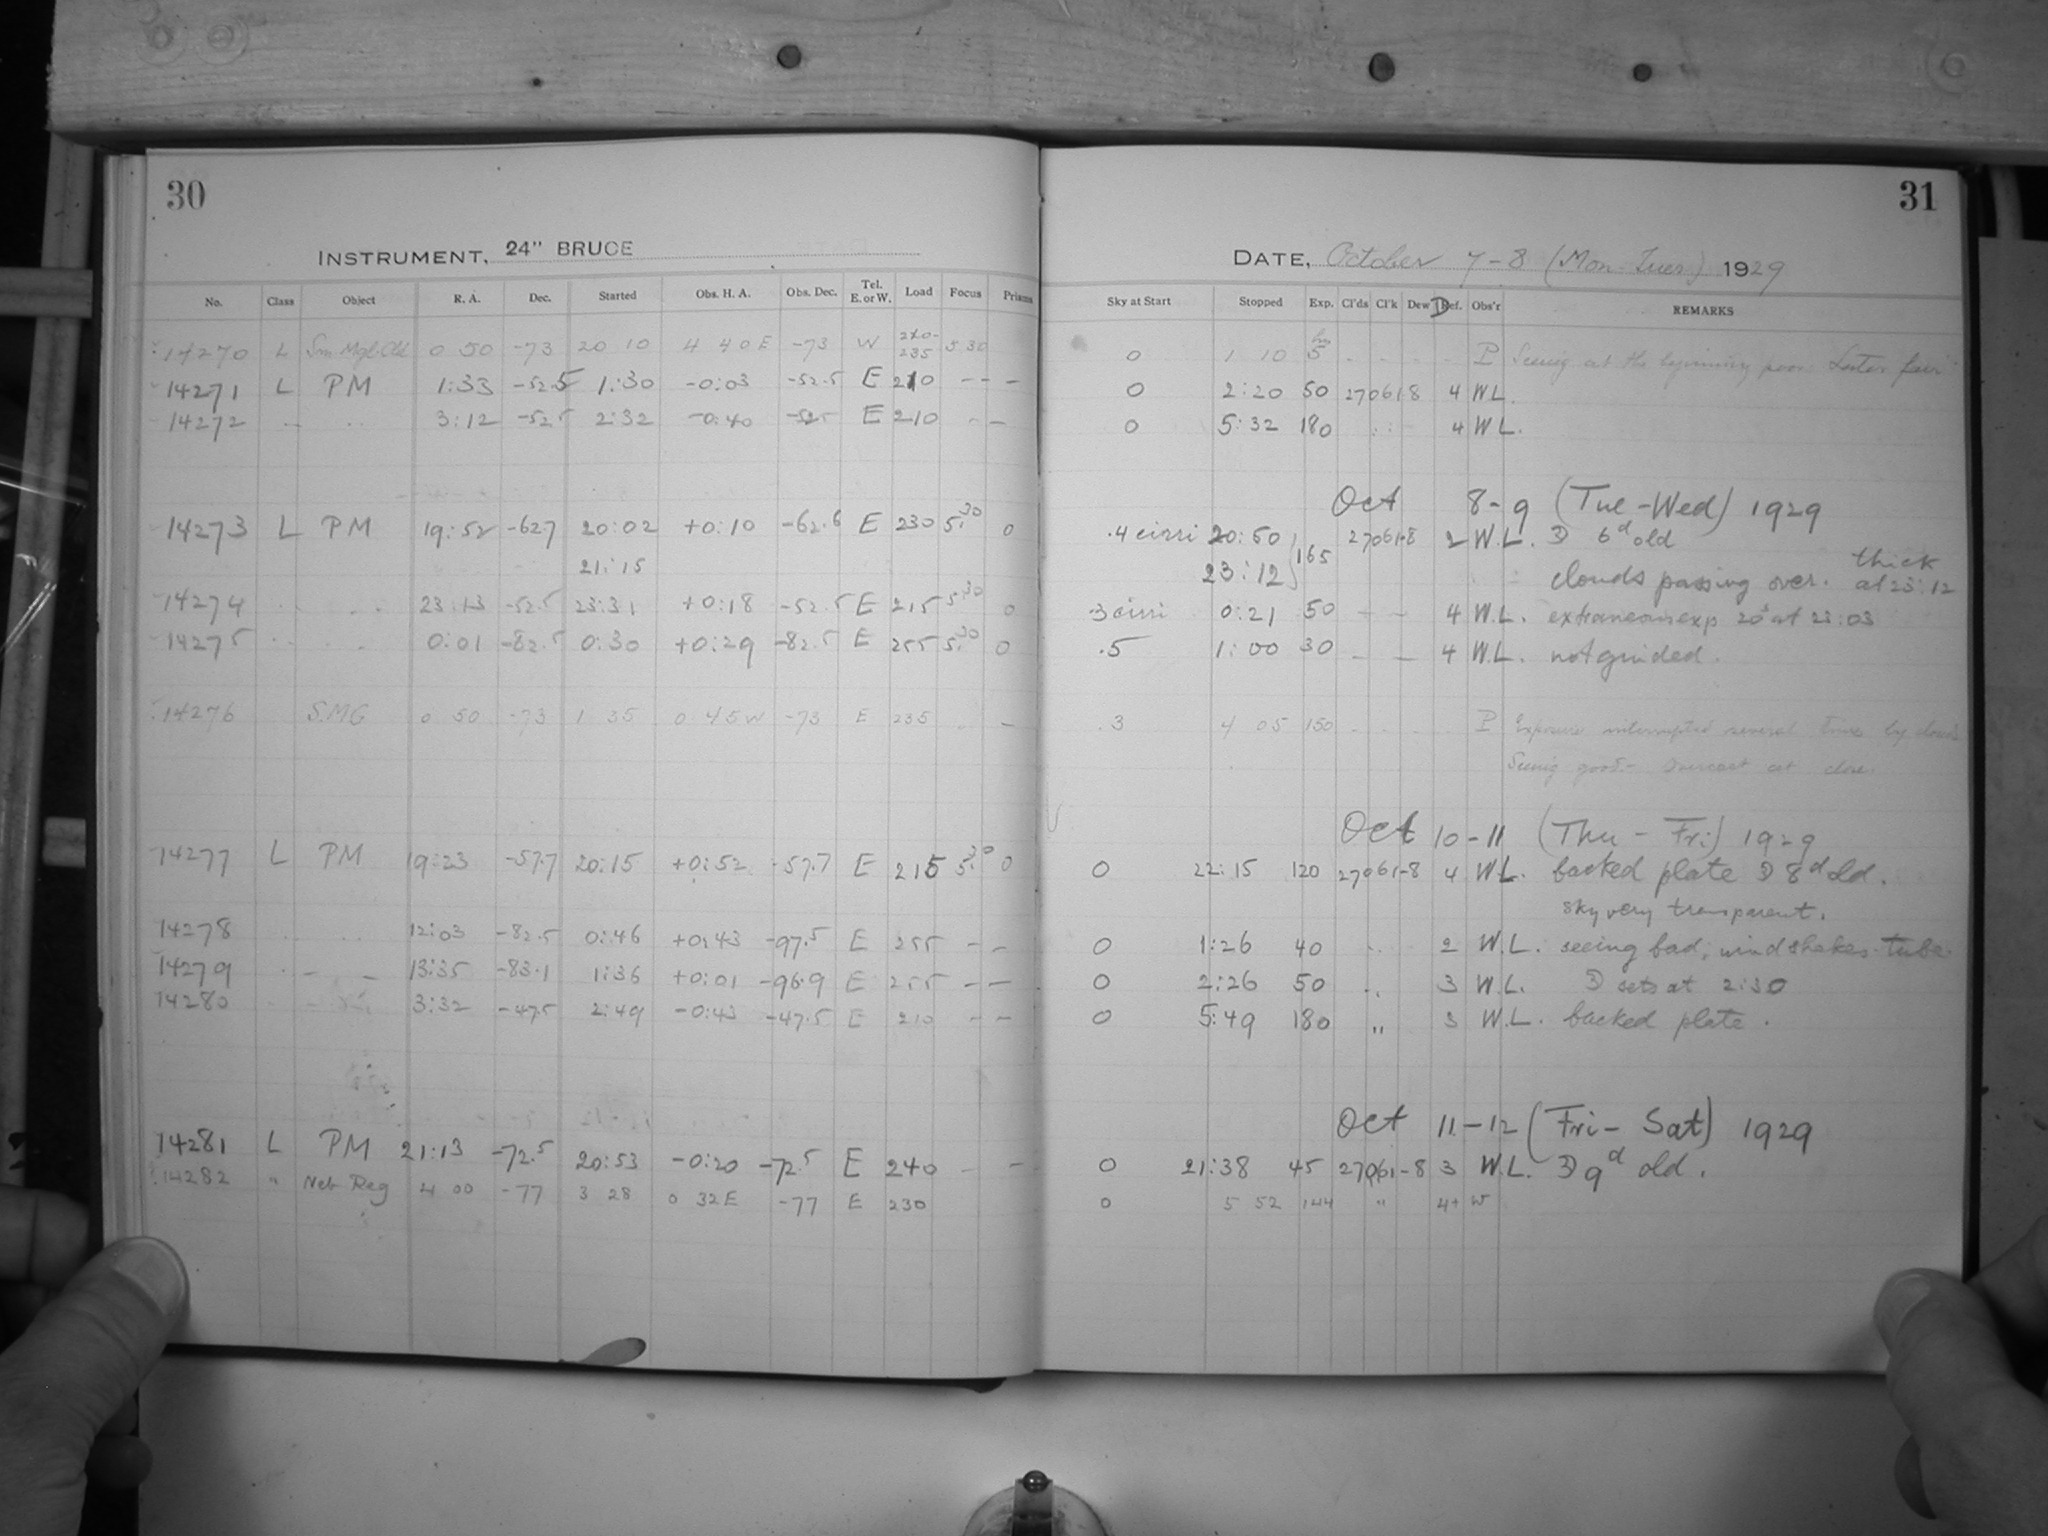 30
INSTRUMENT, 24" BRUCE
No. Class Object R. A. Dec. Started Obs. H. A. Obs. Dec. Tel. E. or W. Load Focus Prisms
14270 L Sm. Mgl. Cld 0 50 -73 20 10 4 40 E -73 W 235 5.30
14271 L PM 1:33 -52.5 1:30 -0:03 -52.5 E 210 - - -
14272 - .. 3:12 -52.5 2:32 -0:40 -52.5 E 210 - -
14273 L PM 19:52 -62.7 20:02 +0:10 -62.6 E 230 5.30 0
21:15
14274 .. .. 23:13 -52.5 23:31 +0:18 -52.5 E 215 5.30 0
14275 .. .. 0:01 -82.5 0:30 +0:29 -82.5 E 255 5.30 0
14276 S.MG 0 50 -73 1 35 0 45 W -73 E 235 .. -
14277 L PM 19:23 -57.7 20:15 +0:52 -57.7 E 215 5.30 0
14278 .. .. 12:03 -82.5 0:46 +0:43 -97.5 E 255 - -
14279 . - - 13:35 -83.1 1:36 +0:01 -96.9 E 255 - -
14280 3:32 -47.5 2:49 -0:43 -47.5 E 210 - -
14281 L PM 21:13 -72.5 20:53 -0:20 -72.5 E 240 - -
14282 " Neb Reg 4 00 -77 3 28 0 32 E -77 E 230
31
DATE, October 7-8 (Mon-Tues) 1929
Sky at Start Stopped Exp. Cl'ds Cl'k Dew Def. Obs'r REMARKS
0 1 10 5 hrs - - - - P Seeing at the beginning poor. Later fair
0 2:20 50 27061-8 4 W.L.
0 5:32 180 : : 4 W.L.
Oct 8-9 (Tue-Wed) 1929
.4 cirri 20:50 27061-8 2 W.L. ☽ 6d old
23:12 } 165 clouds passing over. thick at 23:12
.3 cirri 0:21 50 - - 4 W.L. extraneous exp 20s at 23:03
.5 1:00 30 - - 4 W.L. not guided.
.3 4 05 150 - - - - P Exposure interrupted several times by clouds
Seeing good - Overcast at close.
Oct 10-11 (Thu - Fri) 1929
0 22:15 120 27061-8 4 W.L. backed plate ☽ 8d old.
sky very transparent.
0 1:26 40 .. 2 W.L. seeing bad; wind shakes tube
0 2:26 50 .. 3 W.L. ☽ sets at 2:30
0 5:49 180 " 3 W.L. backed plate.
Oct 11-12 (Fri - Sat) 1929
0 21:38 45 27061-8 3 W.L. ☽ 9d old.
0 5 52 144 " 4+ W